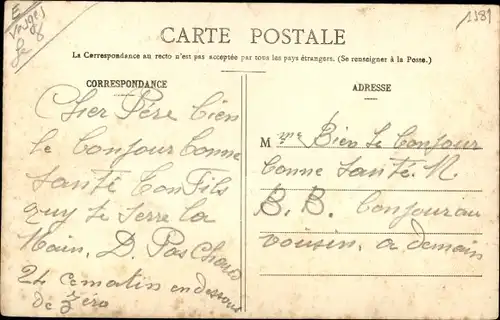 E
Vosges
1981
CARTE POSTALE
La Correspondance au recto n'est pas acceptée par tous les pays étrangers. (Se renseigner à la Poste.)
CORRESPONDANCE
Cher Père bien
le bonjour bonne
santé ton Fils
quy te serre la
Main, D. Pas Chaud
24 ce matin en dessous
de zéro
ADRESSE
M me Bien le bonjour
bonne santé. N.
B. B. bonjour au
voisin, a demain